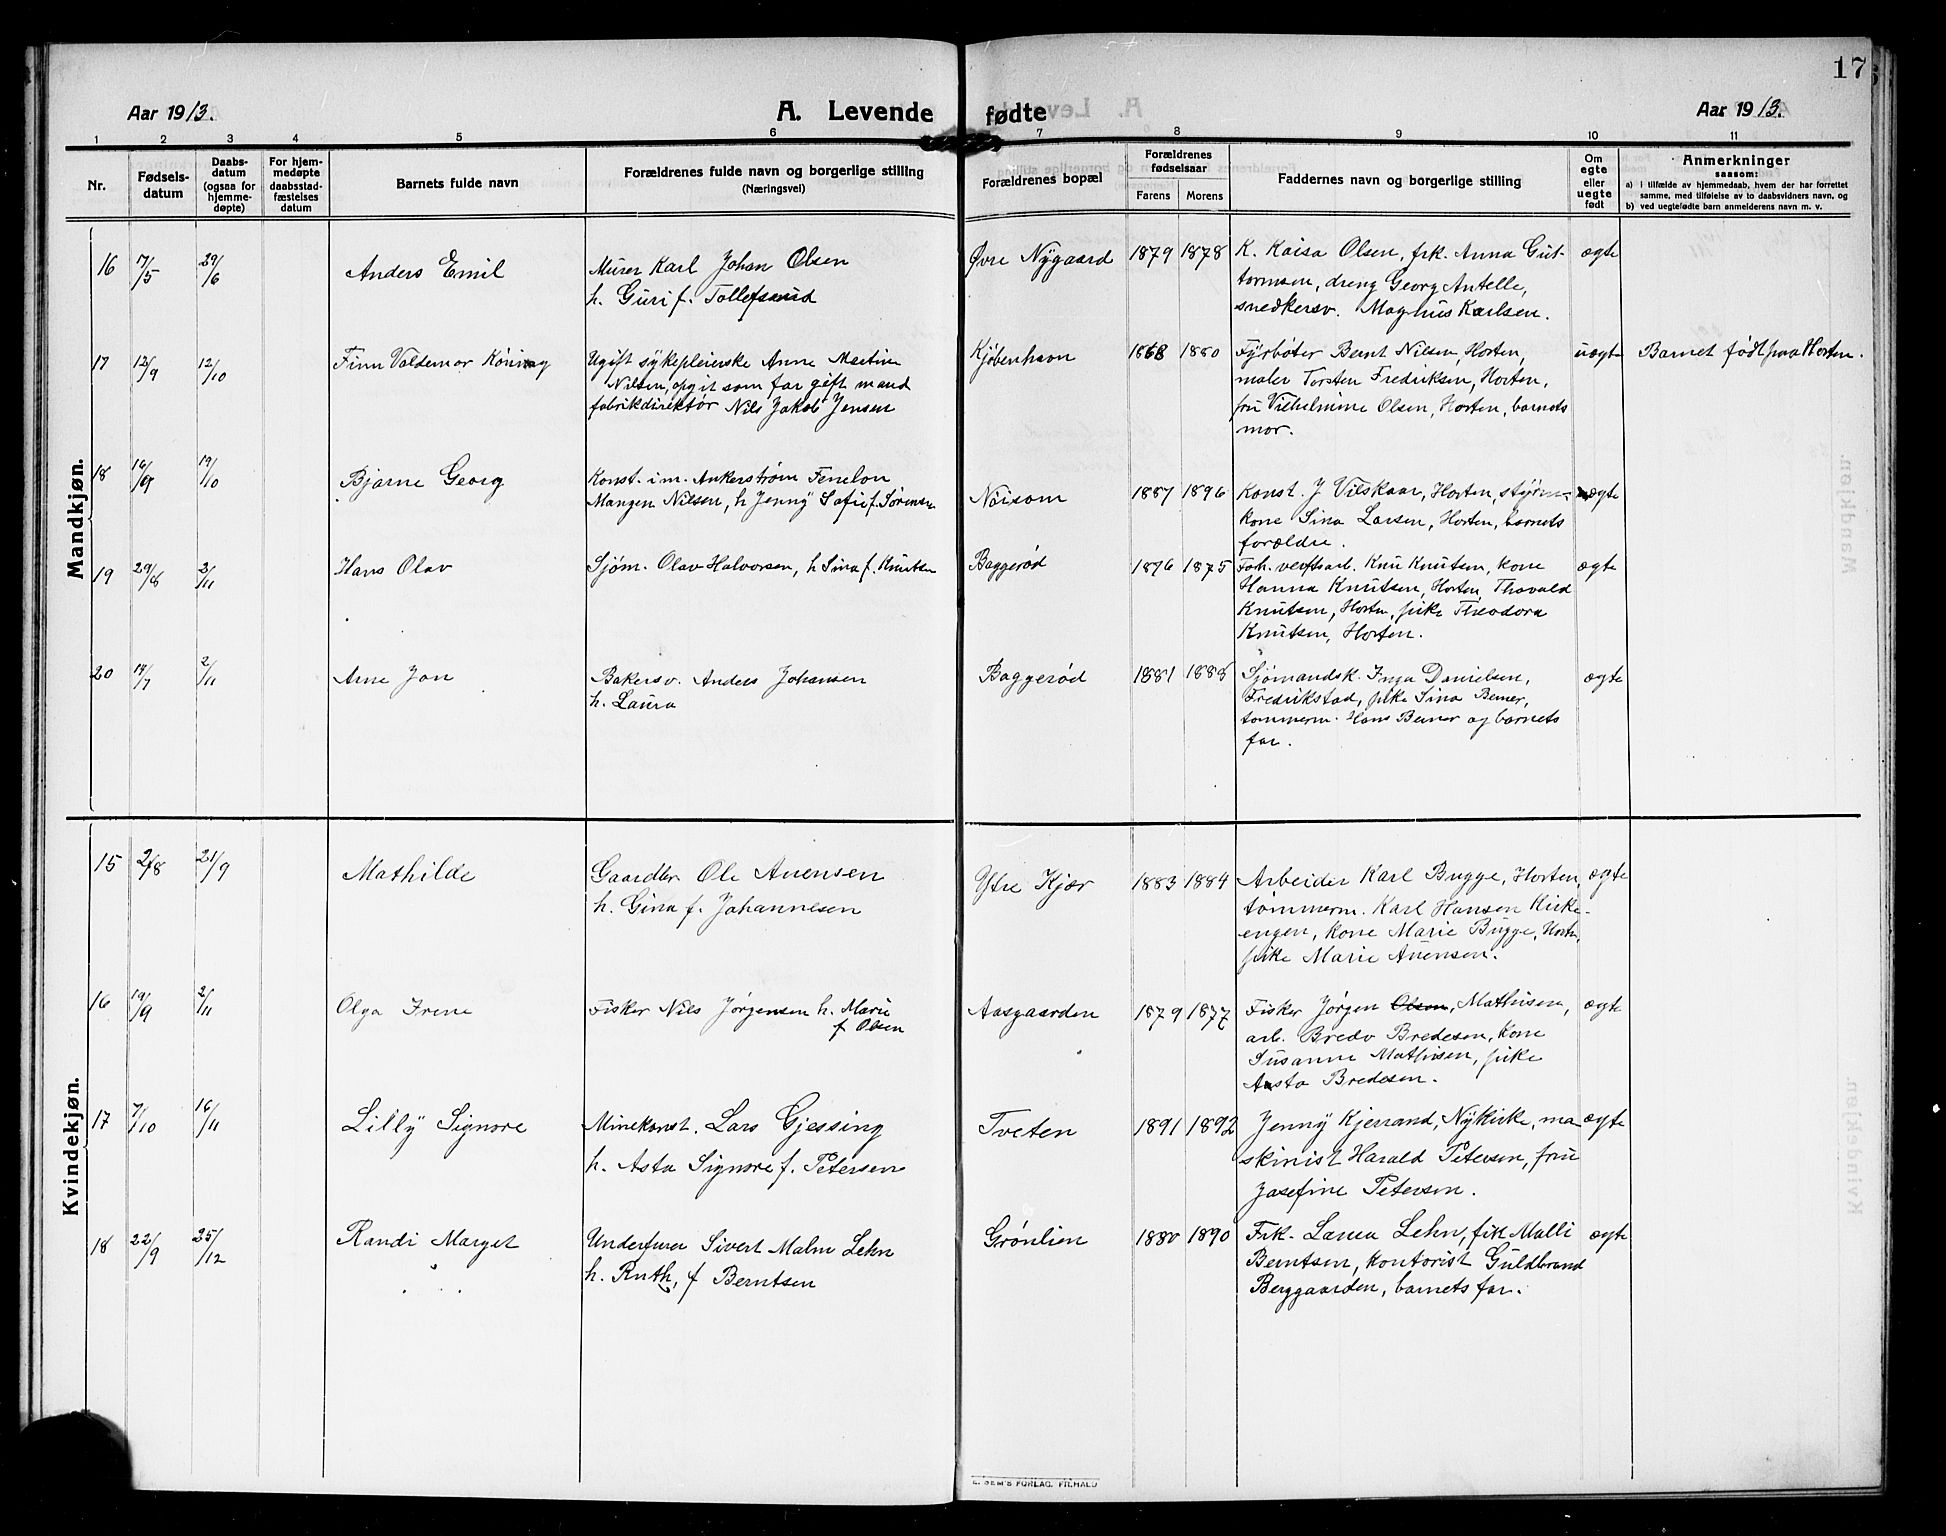 17
Aar 1913.
A. Levende fødte
Aar 1913.
1 2 3 4 5 6 7 8 9 10 11
Nr.
Fødsels-
datum
Daabs-
datum
(ogsaa for
hjemme-
døpte)
For hjem-
medøpte
daabsstad-
fæstelses
datum
Barnets fulde navn
Forældrenes fulde navn og borgerlige stilling
(Næringsvei)
Forældrenes bopæl
Forældrenes
fødselsaar
Farens Morens
Faddernes navn og borgerlige stilling
Om
egte
eller
uegte
født
Anmerkninger
saasom:
a) i tilfælde av hjemmedaab, hvem der har forrettet
samme, med tilføielse av to daabsvidners navn, og
b) ved uegtefødte barn anmelderens navn m. v.
Mandkjøn.
16 7/5 29/6 Anders Emil
Murer Karl Johan Olsen
h. Guri f. Tollefsrud
Øvre Nygaard 1879 1878
K. Kaisa Olsen, frk. Anna Gut-
tormsen, dreng Georg Antelle,
snedkersv. Magnus Karlsen.
ægte
17 12/9 12/10 Finn Valdemar König
Ugift sykepleierske Anne Martine
Nilsen, opgit som far gift mand
fabrikdirektør Nils Jakob Jensen
Kjøbenhavn 1868 1880
Fyrbøter Bernt Nilsen, Horten,
maler Torsten Fredriksen, Horten,
fru Vilhelmine Olsen, Horten, barnets
mor.
uægte Barnet født paa Horten.
18 16/9 19/10 Bjarne Georg
Konst. i m. Ankerstrøm Fenelon
Mangen Nilsen, h Jenny Sofie f. Sørensen
Nøisom 1887 1896
Konst. J Vilskaar, Horten, styrm-
kone Sina Larsen, Horten, barnets
forældre.
ægte
19 29/8 2/11 Hans Olav
Sjøm. Olav Halvorsen, h Sina f. Knutsen
Baggerød 1876 1875
Foh. verftsarb. Knu Knutsen, kone
Hanna Knutsen, Horten, Thovald
Knutsen, Horten, pike Theodora
Knutsen, Horten.
ægte
20 14/7 2/11 Arne Jon
Bakersv. Anders Johansen
h. Laura
Baggerød 1881 1888
Sjømandsk. Inga Danielsen,
Fredrikstad, pike Sina Berner,
tømmerm. Hans Berner og barnets
far.
ægte
Kvindekjøn.
15 2/8 21/9 Mathilde
Gaardbr Ole Auensen
h. Gina f. Johannesen
Ytre Kjær 1883 1884
Arbeider Karl Bugge, Horten,
tømmerm. Karl Hansen Kirke-
engen, kone Marie Bugge, Horten,
pike Marie Auensen.
ægte
16 19/9 2/11 Olga Irene
Fisker Nils Jørgensen h. Marie
f Olsen
Aasgaarden 1879 1877
Fisker Jørgen Olsen, Mathisen,
arb. Bredo Bredesen, kone
Susanne Mathisen, pike
Aasta Bredesen.
ægte
17 7/10 16/11 Lilly Signore
Minekonst. Lars Gjessing
h. Asta Signore f. Petersen
Tveten 1891 1892
Jenny Kjerrand, Nykirke, ma-
skinist Harald Petersen, fru
Josefine Petersen.
ægte
18 22/9 25/12 Randi Marget
Underfurer Sivert Malm Lehn
h. Ruth, f Berntsen
Grønlien 1880 1890
Frk. Laura Lehn, frk Malli
Berntsen, kontorist Guldbrand
Berggaarden, barnets far.
ægte
E. SEM'S FORLAG, FR.HALD